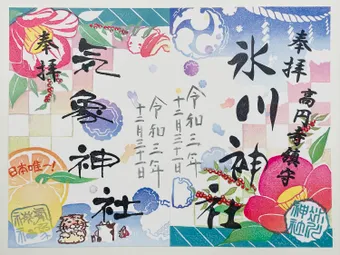 奉拝
高円寺鎮守
氷川神社
令和三年
十二月三十一日
奉拝
気象神社
令和三年
十二月三十一日
日本唯一!